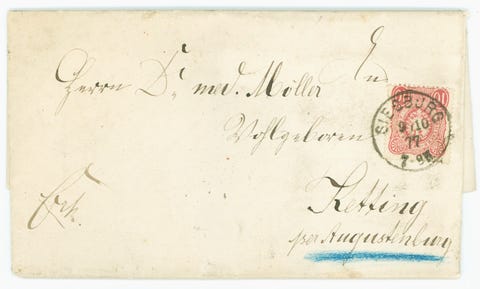 Herrn Dr med. Möller
Wohlgeboren
Ketting
per Augustenburg
10
SIEGBURG
9/10
77